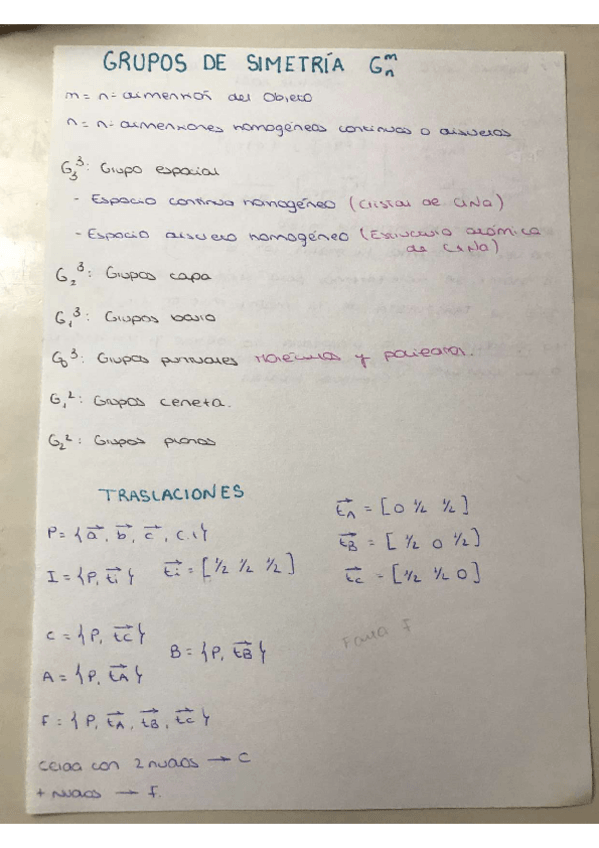 GRUPOS DE SIMETRÍA Gₙᵐ
m = nº dimensión del objeto
n = nº dimensiones homogéneas continuas o discretas
G₃³: Grupo espacial
- Espacio continuo homogéneo (Cristal de ClNa)
- Espacio discreto homogéneo (Estructura atómica
de ClNa)
G₂³: Grupos capa
G₁³: Grupos barra
G₀³: Grupos puntuales moléculas y poliedros.
G₁²: Grupos ceneta.
G₂²: Grupos planos
TRASLACIONES
t⃗A = [0 1/2 1/2]
P = { a⃗, b⃗, c⃗, c.l }
t⃗B = [1/2 0 1/2]
I = {P, t⃗i} t⃗i = [1/2 1/2 1/2]
t⃗c = [1/2 1/2 0]
C = {P, t⃗C}
B = {P, t⃗B}
Falta F
A = {P, t⃗A}
F = {P, t⃗A, t⃗B, t⃗C}
celda con 2 nudos → C
+ nudos → F.